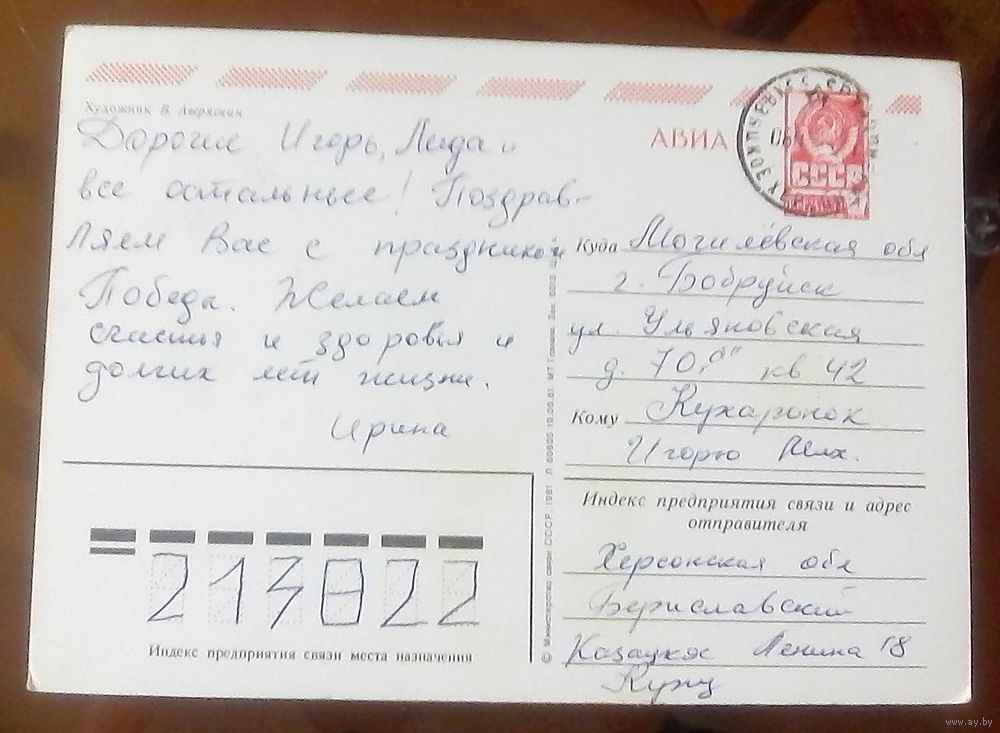 Художник В. Аверяскин
Дорогие Игорь, Лида и
все остальные! Поздрав-
ляем Вас с праздником
Победы. Желаем
счастья и здоровья и
долгих лет жизни.
Ирина
АВИА
СССР
Куда Могилёвская обл
г. Бобруйск
ул. Ульяновская
д. 70 „б" кв 42
Кому Кухаронок
Игорю Мих.
Индекс предприятия связи и адрес
отправителя
Херсонская обл
Бериславский
Казацкое Ленина 18
Купц
213822
Индекс предприятия связи места назначения
© Министерство связи СССР, 1981 Л 60605 19.06.81. МТ Гознака.
www.ay.by